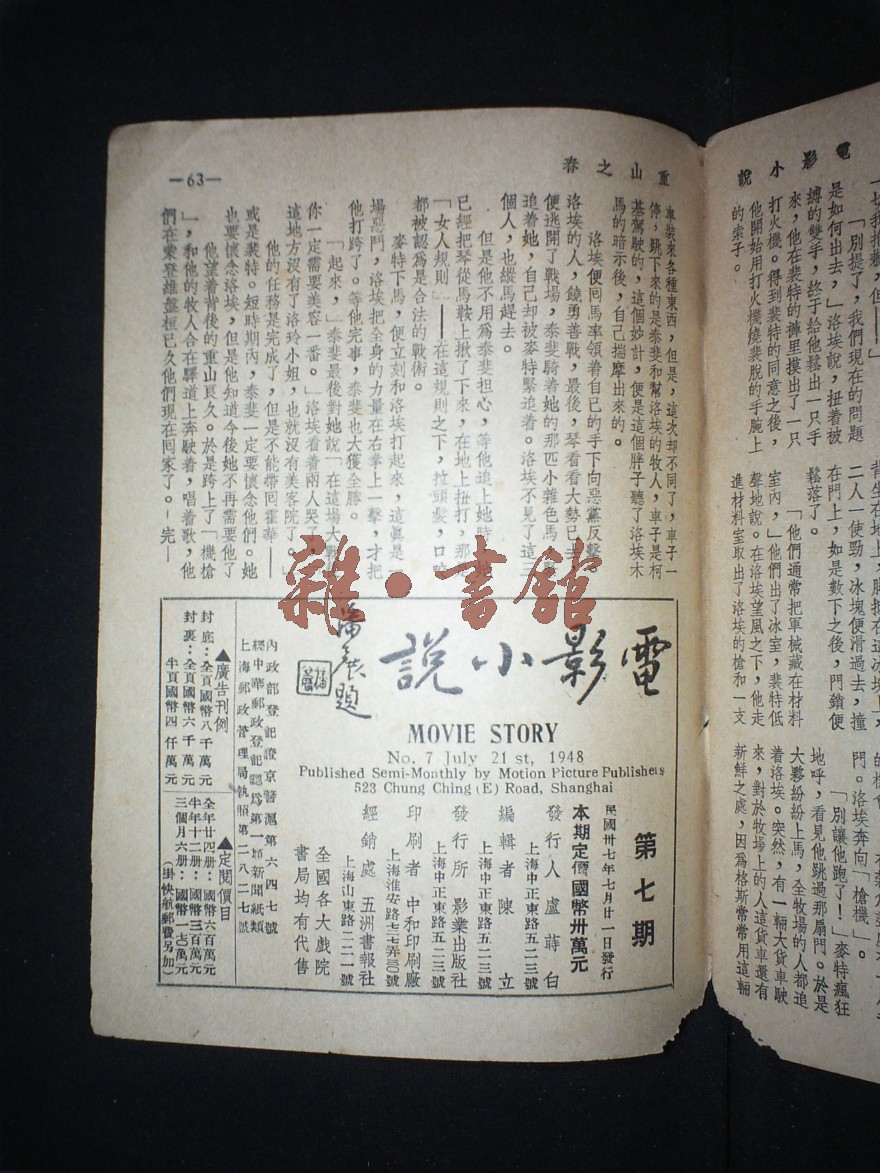 電影小說
一切我抱歉，但——」
「別提了，我們現在的問題
是如何出去，」洛埃說，扭着被
縛的雙手，終于給他鬆出一只手
來，他在裴特的褲里摸出了一只
打火機。得到裴特的同意之後，
他開始用打火機燒裴脫的手腕上
的索子。
二人一使勁，冰塊便滑過去，撞
在門上，如是數下之後，門鎖便
鬆落了。
「他們通常把軍械藏在材料
室內，」他們出了冰室，裴特低
聲地說。在洛埃望風之下，他走
進材料室取出了洛埃的槍和一支
門。洛埃奔向「槍機」。
「別讓他跑了！」麥特瘋狂
地呼，看見他跳過那扇門。於是
大夥紛紛上馬，全牧場的人都追
着洛埃。突然，有一輛大貨車駛
來，對於牧場上的人這貨車還有
新鮮之處，因為格斯常常用這輛
重山之春
—63—
車裝來各種東西，但是，這次却不同了，車子一
停，跳下來的是泰斐和幫洛埃的牧人，車子是柯
基駕駛的，這個妙計，便是這個胖子聽了洛埃木
馬的暗示後，自己揣摩出來的。
洛埃便同馬率領着自已的手下向惡黨反擊。
洛埃的人，饒勇善戰，最後，琴看看大勢已去，
便逃開了戰場，泰斐騎着她的那匹小雜色馬緊
追着她，自己却被麥特緊追着。洛埃不見了這三
個人，也縱馬趕去。
但是他不用爲泰斐担心，等他追上她時，她
已經把琴從馬鞍上揪了下來，在地上扭打，那是
「女人規則」——在這規則之下，拉頭髮，口咬
都被認爲是合法的戰術。
麥特下馬，便立刻和洛埃打起來，這眞是一
場惡鬥，洛埃把全身的力量在右拳上一擊，才把
他打跨了。等他完事，泰斐也大獲全勝。
「起來，」泰斐最後對她說「在這場大戰
你一定需要美容一番。」洛埃看着兩人哭了，
這地方沒有了洛玲小姐，也就沒有美客院了。」
他的任務是完成了，但是不能帶囘霍華——
或是裴特。短時期內，泰斐一定要懷念他們。她
也要懷念洛埃，但是他知道今後她不再需要他了
他望着背後的重山良久。於是跨上了「機槍
」，和他的牧人合在驛道上奔駛着，唱着歌，他
們在東登雄盤桓已久他們現在囘家了。—完—
雜·書舘
電影小說
題
MOVIE STORY
No. 7 July 21 st, 1948
Published Semi-Monthly by Motion Picture Publishers
523 Chung Ching (E) Road, Shanghai
第七期
民國卅七年七月廿一日發行
本期定價國幣卅萬元
發行人 盧蒔白
上海中正東路五二三號
編輯者 陳立
上海中正東路五二三號
發行所 影業出版社
上海中正東路五二三號
印刷者 中和印刷廠
經銷處 五洲書報社
上海山東路二二一號
全國各大戲院
書局均有代售
內政部登記證京警滬第六四七號
經中華郵政登記認爲第一類新聞紙類
上海郵政管理局執照第二八二七號
▲廣告刊例
封底：全頁國幣八千萬元
封裏：全頁國幣六千萬元
半頁國幣四仟萬元
▲定閱價目
全年廿四册：國幣六百萬元
半年十二册：國幣三百萬元
三個月六册：國幣一七萬元
（掛快航郵費另加）